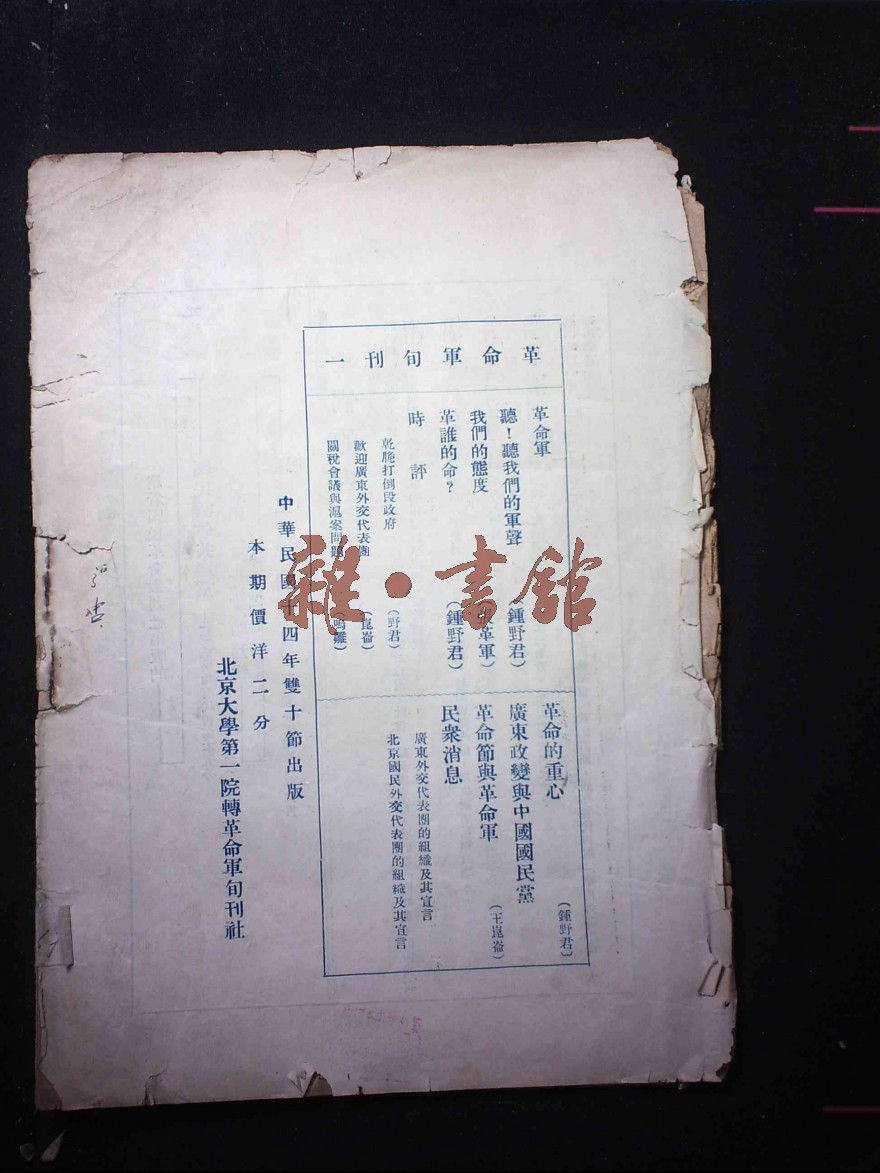 革命軍旬刊一
革命軍
聽！聽我們的軍聲 (鍾野君)
我們的態度 革軍)
革誰的命？ (鍾野君)
時評
乾脆打倒段政府 (野君)
歡迎廣東外交代表團 (崑崙)
關稅會議與滬案問題 (鳴雛)
革命的重心 (鍾野君)
廣東政變與中國國民黨
革命節與革命軍 (王崑崙)
民衆消息
廣東外交代表團的組織及其宣言
北京國民外交代表團的組織及其宣言
中華民國十四年雙十節出版
本期價洋二分
北京大學第一院轉革命軍旬刊社
雜·書館